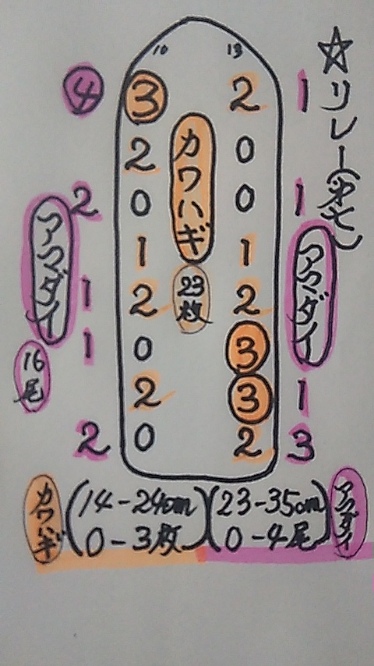 ☆リレー(沖七)
10 13
④ ③ 2 1
2 0
2 0 0 1
1 1
1 2 2
1 0 ③
2 ③ 1
2 0 2 3
カワハギ
23枚
アマダイ
16尾
アマダイ
カワハギ (14-24cm) (23-35cm) アマダイ
(0-3枚) (0-4尾)